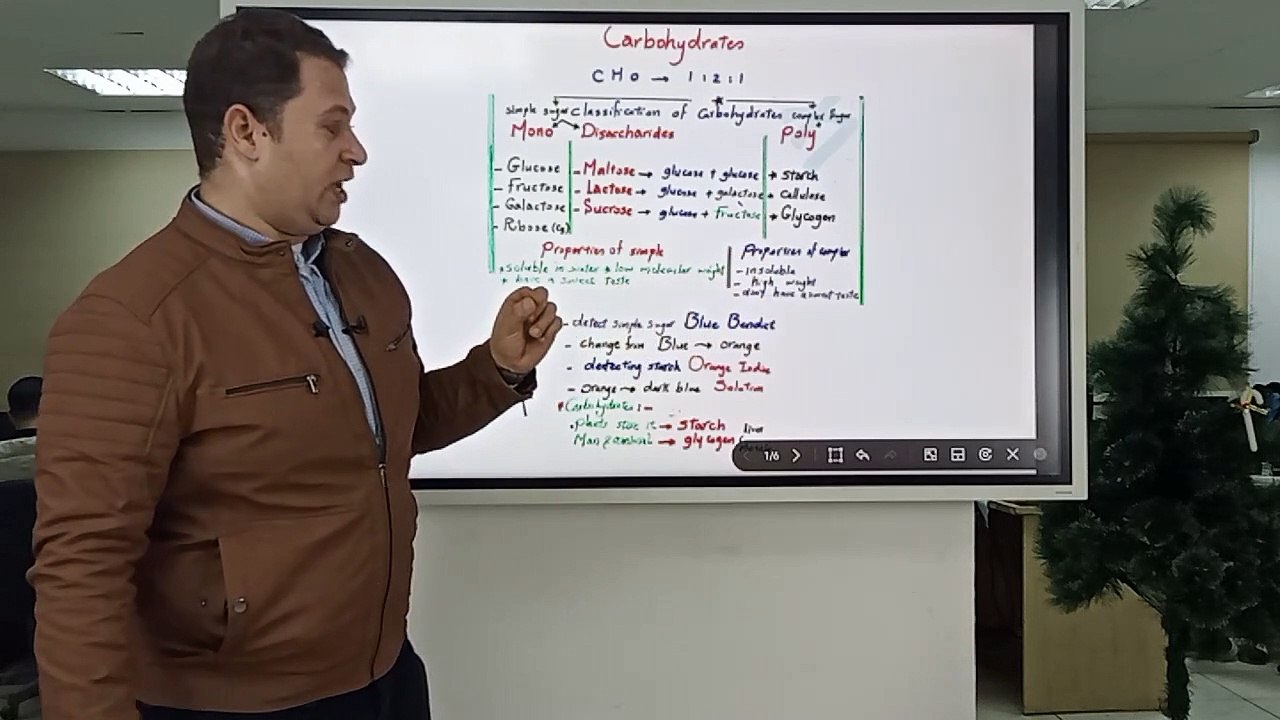 Carbohydrates
C H O → 1 : 2 : 1
simple sugar Classification of Carbohydrates complex sugar
Mono Disaccharides Poly
- Glucose - Maltose → glucose + glucose → starch
- Fructose - Lactose → glucose + galactose → cellulose
- Galactose - Sucrose → glucose + fructose → Glycogen
- Rbose
of simple
of
* soluble in water * low molecular weight - insoluble
* have a sweet taste - high weight
- don't have a sweet taste
- detect simple sugar Blue Bendict
- change from Blue → orange
- detecting starch Orange
- orange → dark blue Solution
* Carbohydrates :-
store it → starch liver
Man → glycogen
1/6